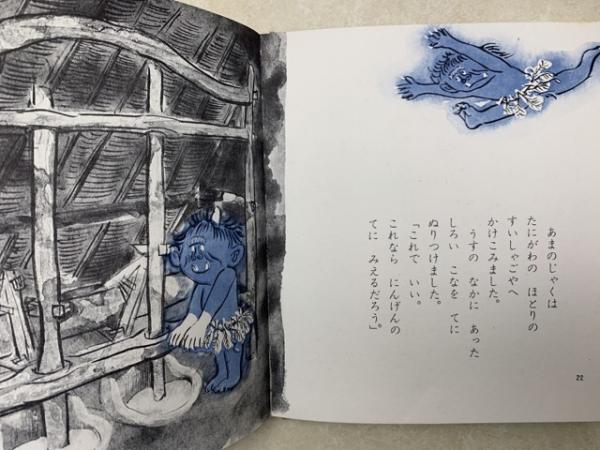 あまのじゃくは
たにがわの ほとりの
すいしゃごやへ
かけこみました。
うすの なかに あった
しろい こなを てに
ぬりつけました。
「これで いい。
これなら にんげんの
てに みえるだろう」。
22